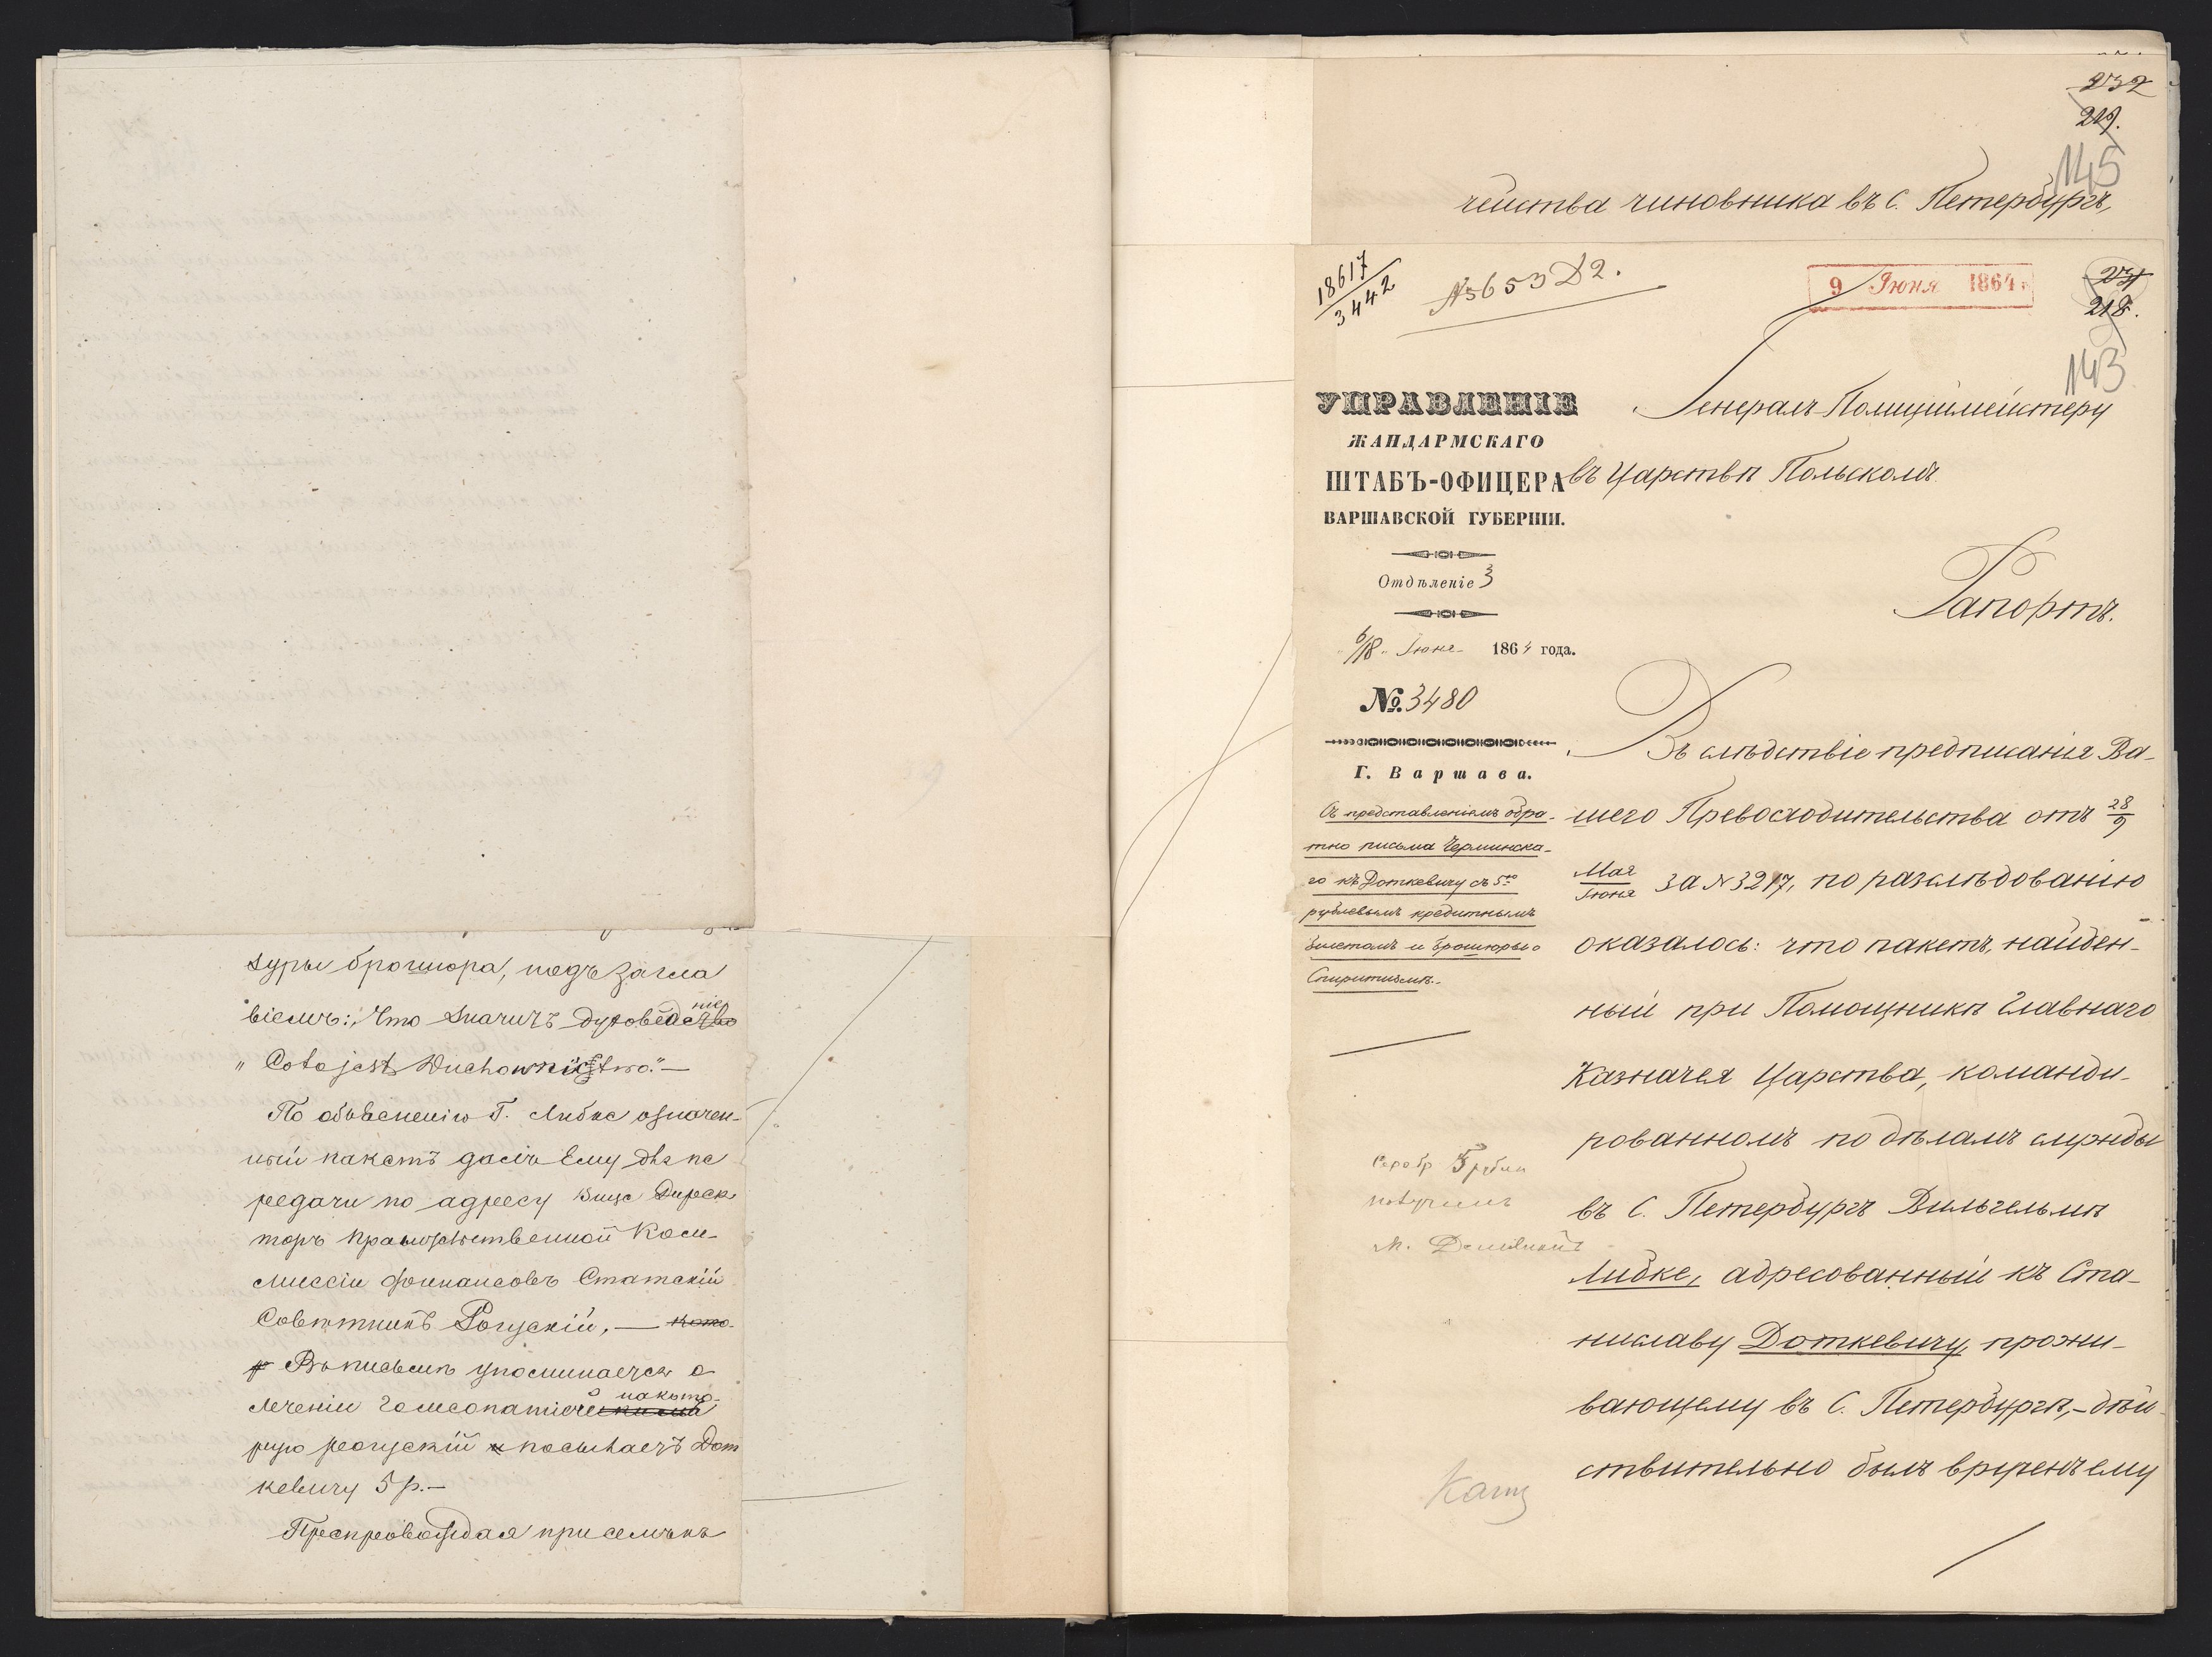 зуры брошюра, подъ загла
віемъ: „Что значитъ духовѣденіе
„Coto jest Duchownictwo."—
По объясненію Г. Либке означен-
ный пакетъ далъ Ему для пе
редачи по адресу Вице Дирек
торъ Правительственной Ком-
миссіи Финансовъ Статскій
Совѣтникъ Рогускій, — кото-
Въ письмѣ упоминается о
леченіи гомеопатіей на кото-
рую Рогускій посылаетъ Дот
кевичу 5 р.—
Препровождая при семъ къ
232
219.
145
чейства чиновника въ С. Петербургъ,
18617
3442
№ 653 Д2.
9 Іюня 1864 г.
231
218.
143
УПРАВЛЕНІЕ
ЖАНДАРМСКАГО
ШТАБЪ-ОФИЦЕРА
ВАРШАВСКОЙ ГУБЕРНІИ.
Отдѣленіе 3
6/18 „ Іюня 1864 года.
№ 3480
Г. Варшава.
Съ представленіемъ обра-
тно письма Черминска-
го къ Доткевичу съ 5ю
рублевымъ кредитнымъ
билетомъ и брошюры о
Спиритизмѣ.
Серебр 5 рубли
получилъ
Генералъ-Полиціймейстеру
въ Царствѣ Польскомъ
Рапортъ.
Въ слѣдствіе предписанія Ва-
шего Превосходительства отъ 28/9
Мая/Іюня за № 3217, по разслѣдованію
оказалось: что пакетъ, найден-
ный при Помощникѣ Главнаго
Казначея Царства, команди-
рованномъ по дѣламъ службы
въ С. Петербургъ Вильгельмѣ
Либке, адресованный къ Ста-
ниславу Доткевичу, прожи-
вающему въ С. Петербургѣ, – дѣй-
ствительно былъ врученъ ему